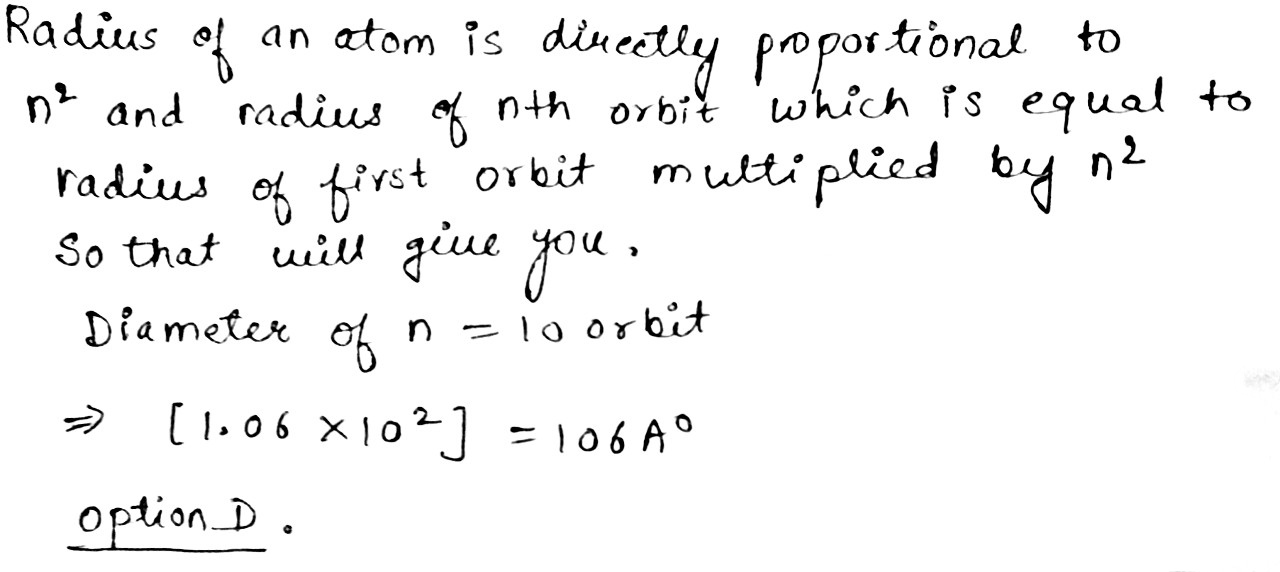 Radius of an atom is directly proportional to
n² and radius of nth orbit which is equal to
radius of first orbit multiplied by n²
So that will give you,
Diameter of n = 10 orbit
⇒ [1.06 × 10²] = 106 A°
option D.